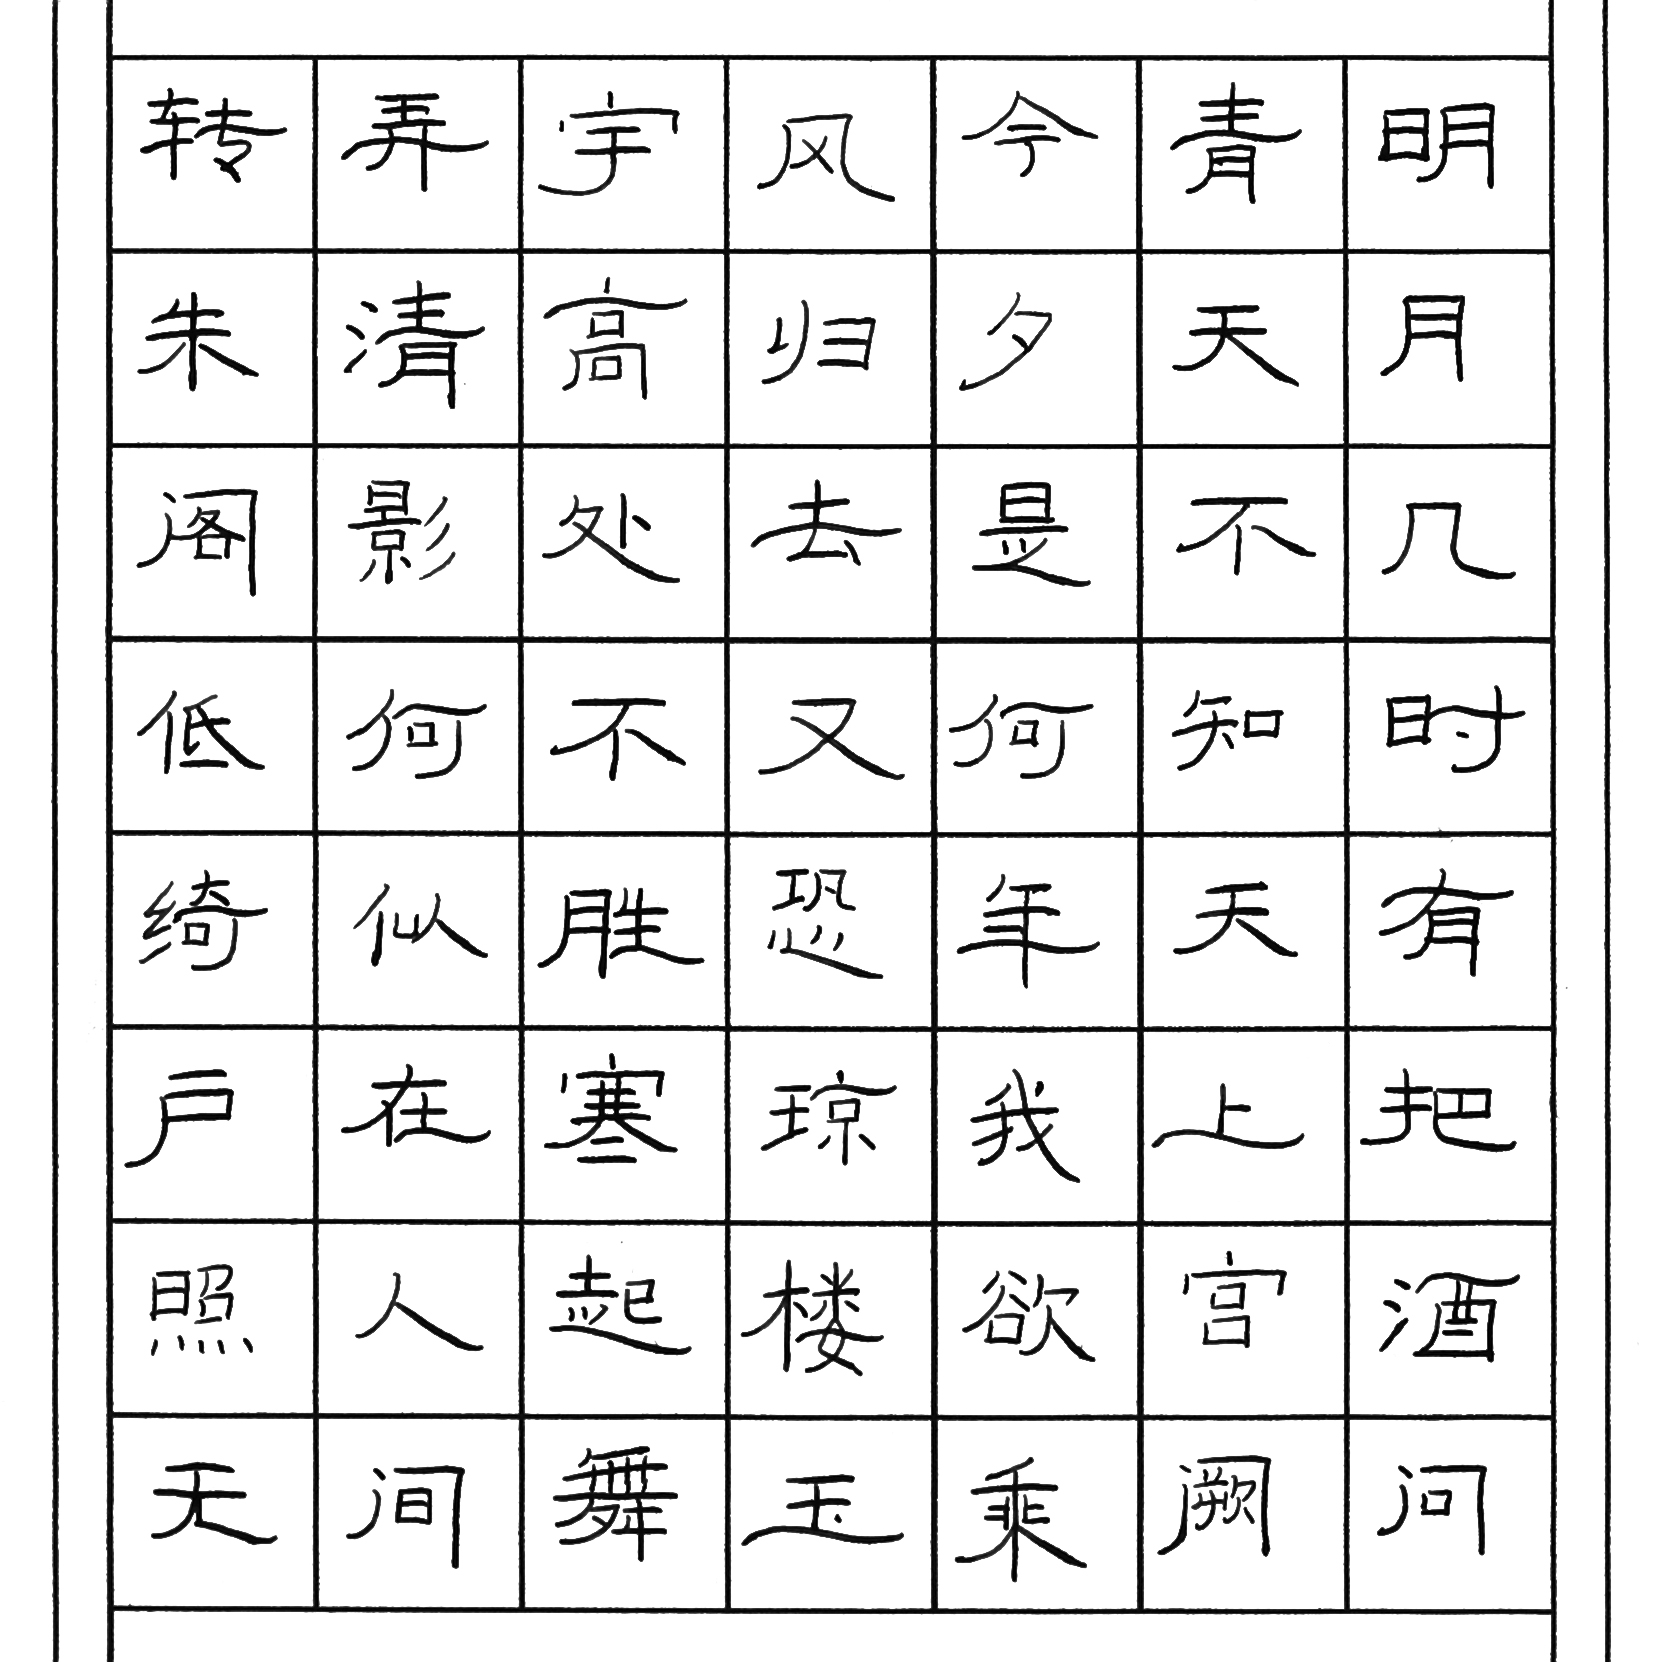 明月几时有把酒问
青天不知天上宫阙
今夕是何年我欲乘
风归去又恐琼楼玉
宇高处不胜寒起舞
弄清影何似在人间
转朱阁低绮户照无